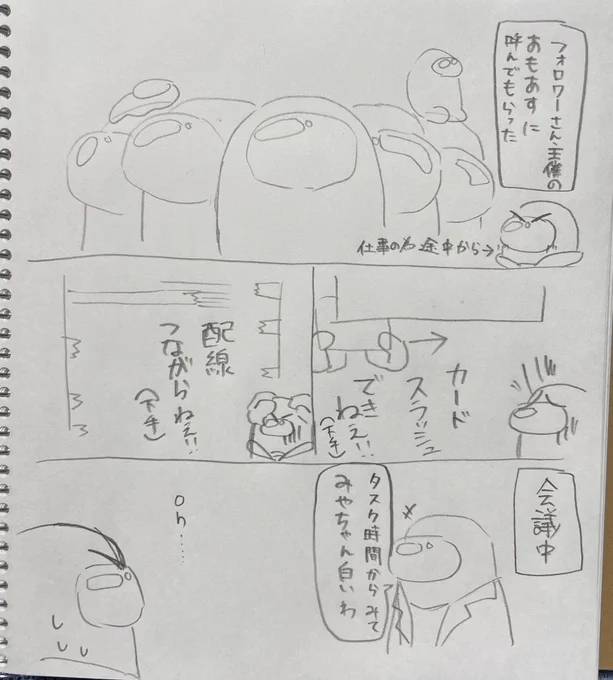 フォロワーさん主催の
おもあすに
呼んでもらった
仕事の為途中から→
カード
スラッシュ
できねぇ!!
(下手)
配線
つながらねぇ!!
(下手)
会議中
タスク時間からみて
みやちゃん白いわ
oh……